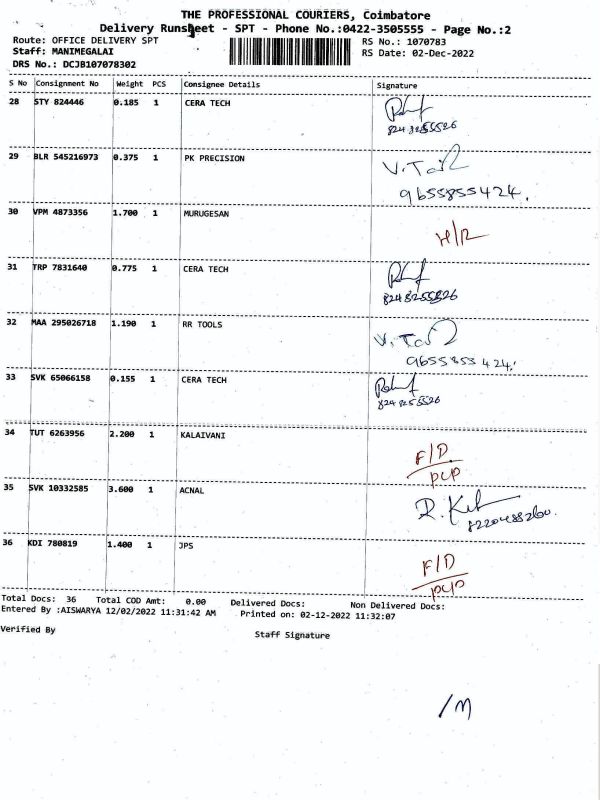 THE PROFESSIONAL COURIERS, Coimbatore
Delivery Runsheet - SPT - Phone No.:0422-3505555 - Page No.:2
Route: OFFICE DELIVERY SPT RS No.: 1070783
Staff: MANIMEGALAI RS Date: 02-Dec-2022
DRS No.: DCJB107078302
S No Consignment No Weight PCS Consignee Details Signature
28 STY 824446 0.185 1 CERA TECH
8248255526
29 BLR 545216973 0.375 1 PK PRECISION
9655855424.
30 VPM 4873356 1.700 1 MURUGESAN
H/R
31 TRP 7831640 0.775 1 CERA TECH
8248255526
32 MAA 295026718 1.190 1 RR TOOLS
9655855424.
33 SVK 65066158 0.155 1 CERA TECH
8248255526
34 TUT 6263956 2.200 1 KALAIVANI
F/D
PCP
35 SVK 10332585 3.600 1 ACNAL
36 KDI 780819 1.400 1 JPS
F/D
PCP
Total Docs: 36 Total COD Amt: 0.00 Delivered Docs: Non Delivered Docs:
Entered By :AISWARYA 12/02/2022 11:31:42 AM Printed on: 02-12-2022 11:32:07
Verified By Staff Signature